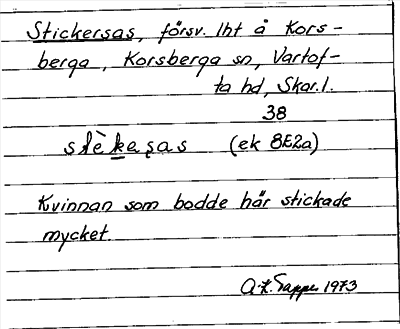 Stickersas, försv. lht å Kors-
berga, Korsberga sn, Vartof-
ta hd, Skar.l.
38
stèkeʂas (ek 8E2a)
Kvinnan som bodde här stickade
mycket.
1973